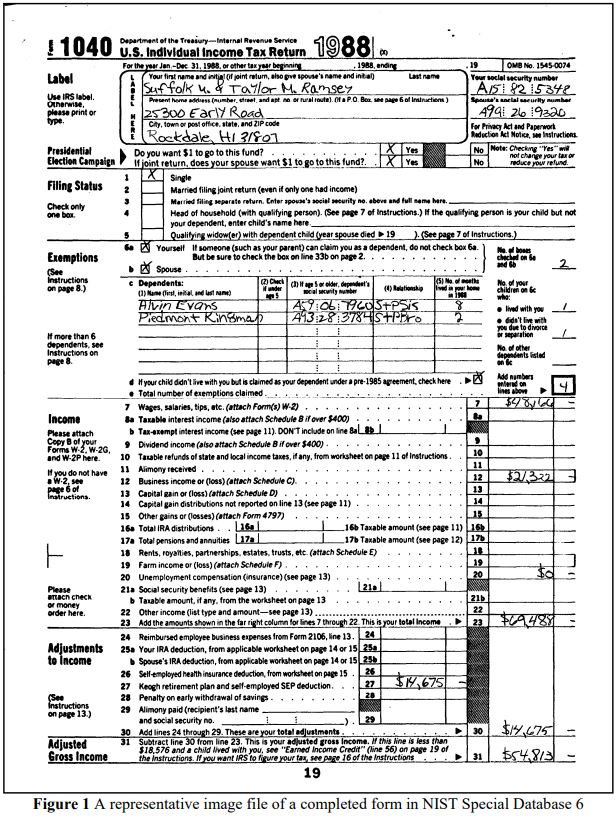 Form 1040 Department of the Treasury—Internal Revenue Service
U.S. Individual Income Tax Return 1988
For the year Jan.-Dec. 31, 1988, or other tax year beginning , 1988, ending , 19 OMB No. 1545-0074
Label
Use IRS label. Otherwise, please print or type.
LABEL HERE
Your first name and initial (if joint return, also give spouse's name and initial) Last name
Suffolk U. & Taylor M. Ramsey
Your social security number
A15 82 5348
Present home address (number, street, and apt. no. or rural route). (If a P.O. Box, see page 6 of Instructions.)
25300 Early Road
Spouse's social security number
A99 26 9320
City, town or post office, state, and ZIP code
Rockdale, HI 31807
For Privacy Act and Paperwork Reduction Act Notice, see Instructions.
Presidential Election Campaign
Do you want $1 to go to this fund? X Yes No
If joint return, does your spouse want $1 to go to this fund? X Yes No
Note: Checking "Yes" will not change your tax or reduce your refund.
Filing Status
Check only one box.
1 X Single
2 Married filing joint return (even if only one had income)
3 Married filing separate return. Enter spouse's social security no. above and full name here.
4 Head of household (with qualifying person). (See page 7 of Instructions.) If the qualifying person is your child but not your dependent, enter child's name here.
5 Qualifying widow(er) with dependent child (year spouse died ▶ 19 ). (See page 7 of Instructions.)
Exemptions
(See Instructions on page 8.)
6a X Yourself If someone (such as your parent) can claim you as a dependent, do not check box 6a.
But be sure to check the box on line 33b on page 2.
b X Spouse
No. of boxes checked on 6a and 6b 2
c Dependents:
(1) Name (first, initial, and last name) (2) Check if under age 5 (3) If age 5 or older, dependent's social security number (4) Relationship (5) No. of months lived in your home in 1988
Alvin Evans A57 06 7960 StPSis 8
Piedmont Kingman A93 28 3784 StPBro 2
No. of your children on 6c who:
● lived with you 1
● didn't live with you due to divorce or separation 1
No. of other dependents listed on 6c
If more than 6 dependents, see Instructions on page 8.
d If your child didn't live with you but is claimed as your dependent under a pre-1985 agreement, check here ▶ X
e Total number of exemptions claimed
Add numbers entered on lines above ▶ 4
Income
Please attach Copy B of your Forms W-2, W-2G, and W-2P here.
If you do not have a W-2, see page 6 of Instructions.
Please attach check or money order here.
7 Wages, salaries, tips, etc. (attach Form(s) W-2) 7 $48,166 –
8a Taxable interest income (also attach Schedule B if over $400) 8a
b Tax-exempt interest income (see page 11). DON'T include on line 8a 8b
9 Dividend income (also attach Schedule B if over $400) 9
10 Taxable refunds of state and local income taxes, if any, from worksheet on page 11 of Instructions 10
11 Alimony received 11
12 Business income or (loss) (attach Schedule C) 12 $21,322 –
13 Capital gain or (loss) (attach Schedule D) 13
14 Capital gain distributions not reported on line 13 (see page 11) 14
15 Other gains or (losses) (attach Form 4797) 15
16a Total IRA distributions 16a 16b Taxable amount (see page 11) 16b
17a Total pensions and annuities 17a 17b Taxable amount (see page 12) 17b
18 Rents, royalties, partnerships, estates, trusts, etc. (attach Schedule E) 18
19 Farm income or (loss) (attach Schedule F) 19
20 Unemployment compensation (insurance) (see page 13) 20 $0 –
21a Social security benefits (see page 13) 21a
b Taxable amount, if any, from the worksheet on page 13 21b
22 Other income (list type and amount—see page 13) 22
23 Add the amounts shown in the far right column for lines 7 through 22. This is your total income ▶ 23 $69,488 –
Adjustments to Income
(See Instructions on page 13.)
24 Reimbursed employee business expenses from Form 2106, line 13 24
25a Your IRA deduction, from applicable worksheet on page 14 or 15 25a
b Spouse's IRA deduction, from applicable worksheet on page 14 or 15 25b
26 Self-employed health insurance deduction, from worksheet on page 15 26
27 Keogh retirement plan and self-employed SEP deduction 27 $14,675 –
28 Penalty on early withdrawal of savings 28
29 Alimony paid (recipient's last name
and social security no. ) 29
30 Add lines 24 through 29. These are your total adjustments ▶ 30 $14,675 –
Adjusted Gross Income
31 Subtract line 30 from line 23. This is your adjusted gross income. If this line is less than $18,576 and a child lived with you, see "Earned Income Credit" (line 56) on page 19 of the Instructions. If you want IRS to figure your tax, see page 16 of the Instructions ▶ 31 $54,813 –
19
Figure 1 A representative image file of a completed form in NIST Special Database 6